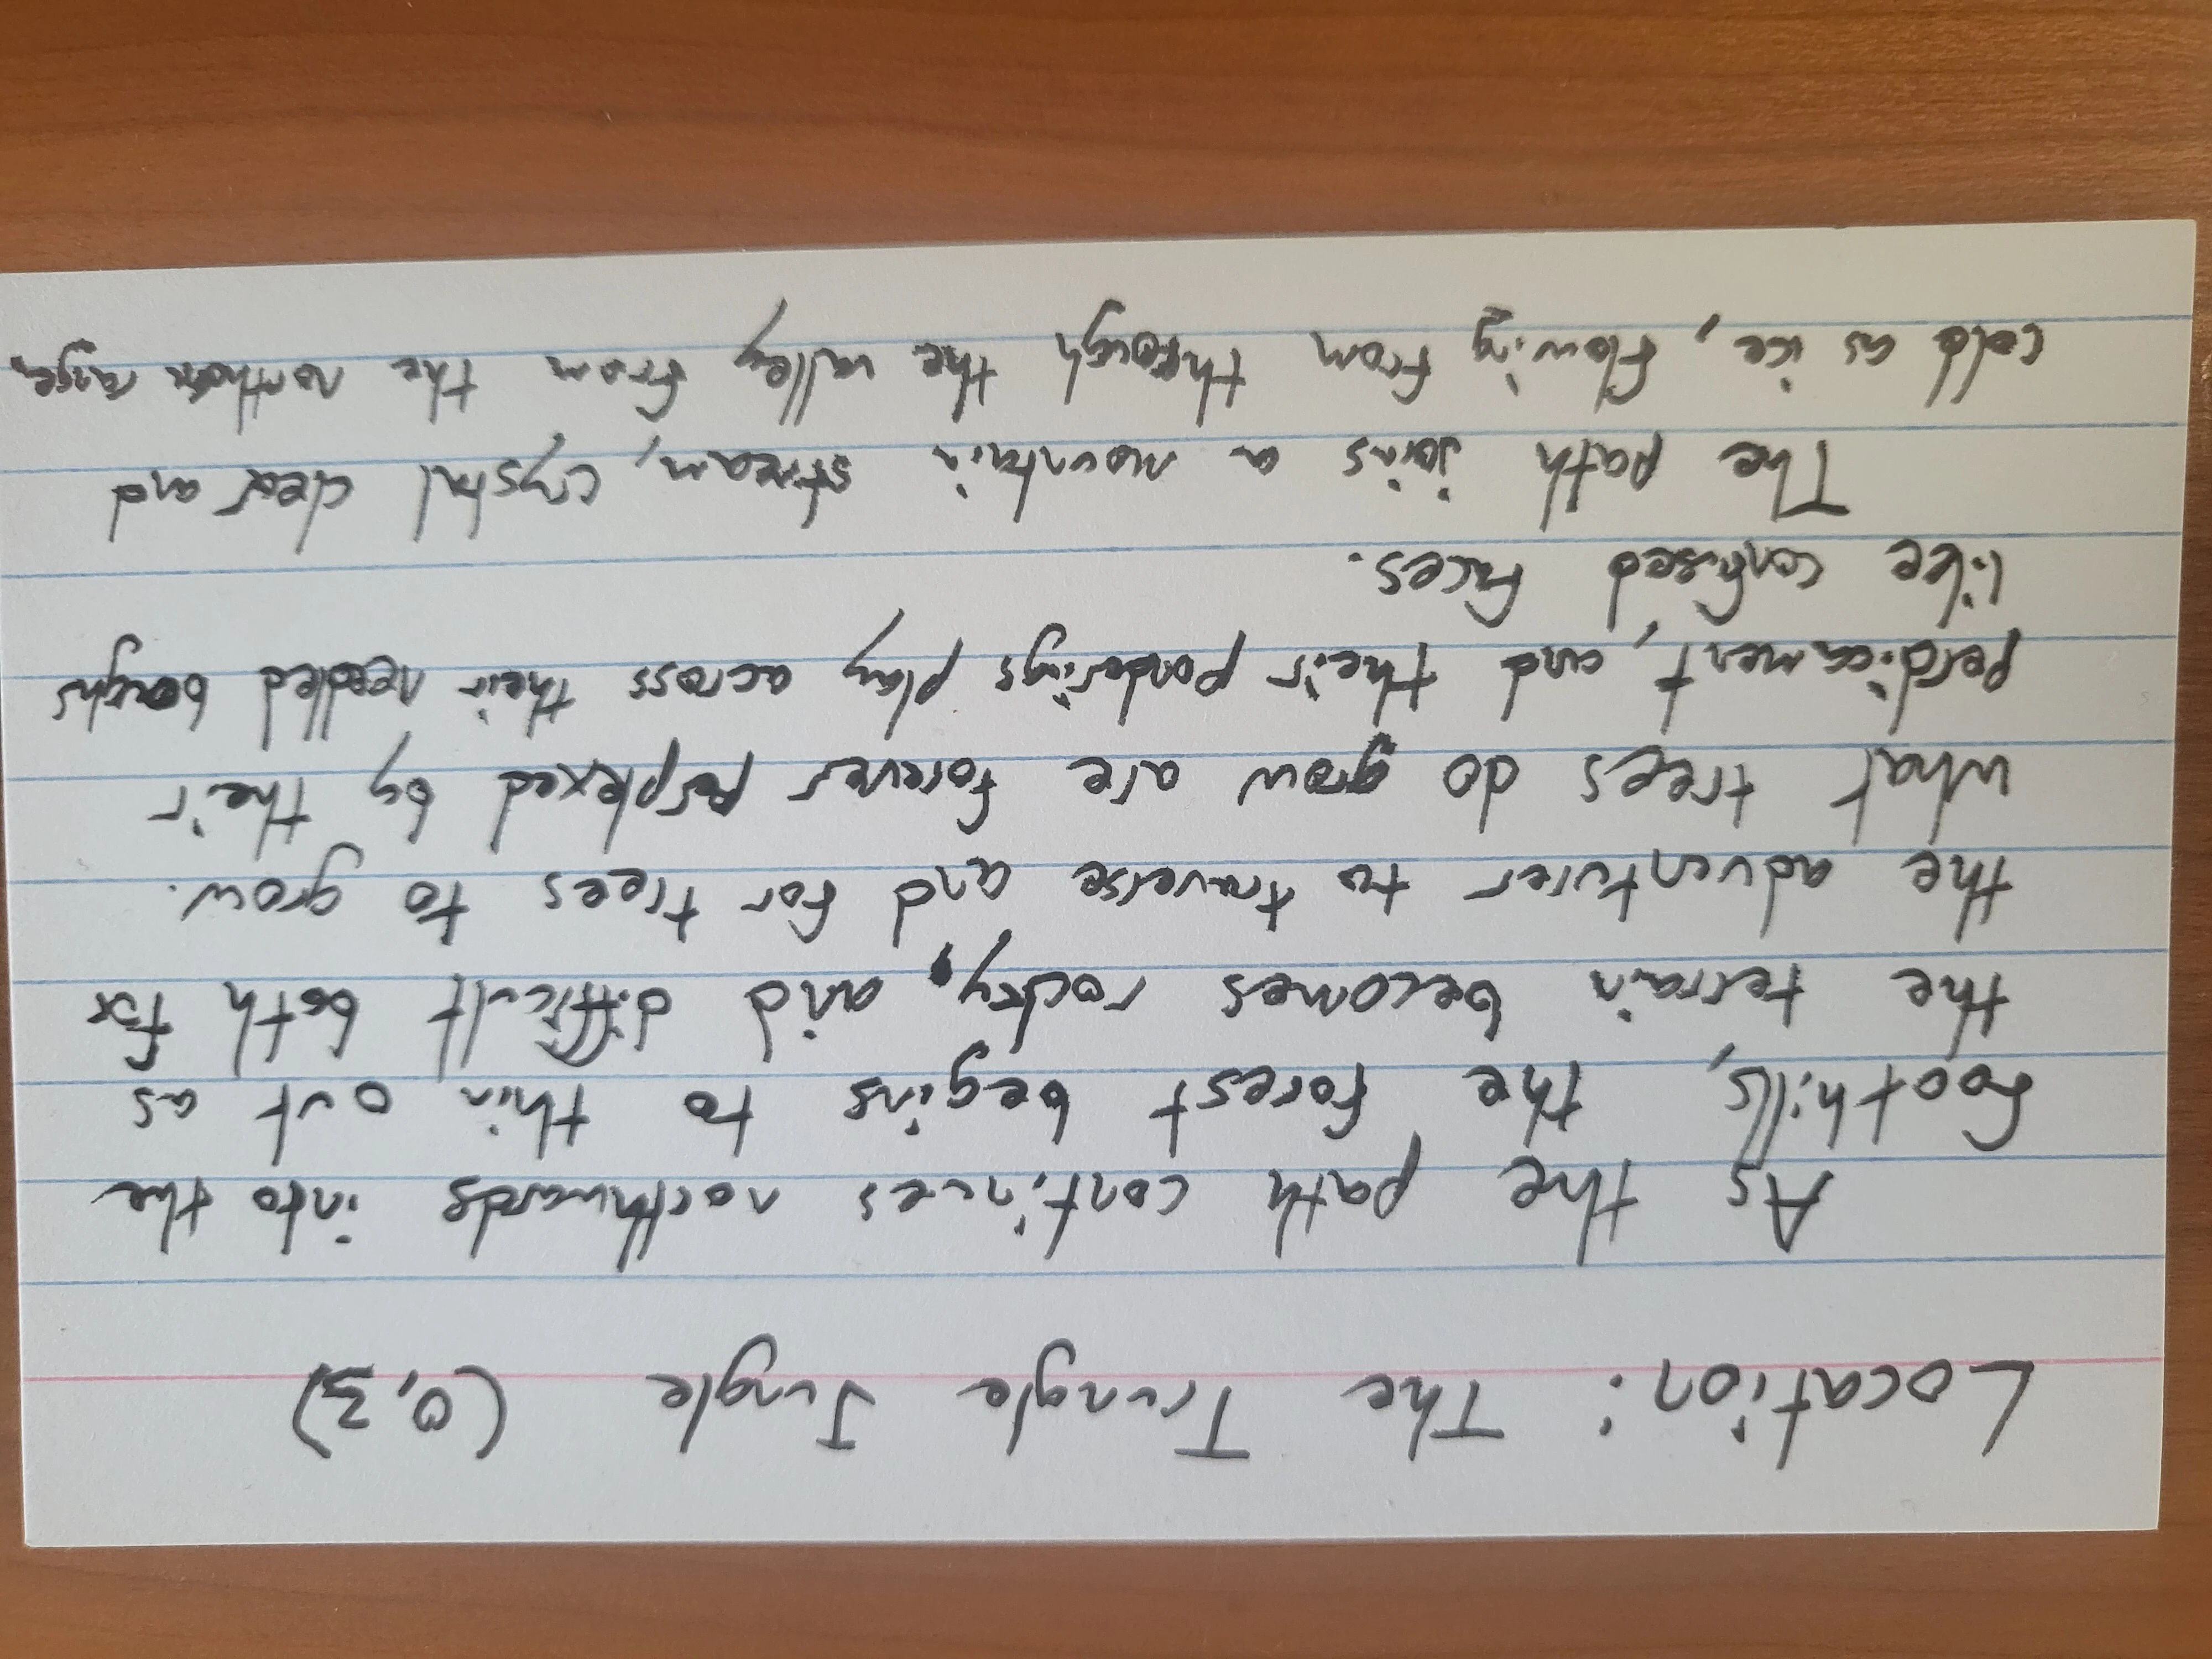 Location: The Trungle Jungle (0,3)
As the path continues northwards into the
foothills, the forest begins to thin out as
the terrain becomes rocky, and difficult both for
the adventurer to traverse and for trees to grow.
What trees do grow are forever perplexed by their
perdicament, and their ponderings play across their needled boughs
like confused faces.
The path joins a mountain stream, crystal clear and
cold as ice, flowing from through the valley from the northern range,